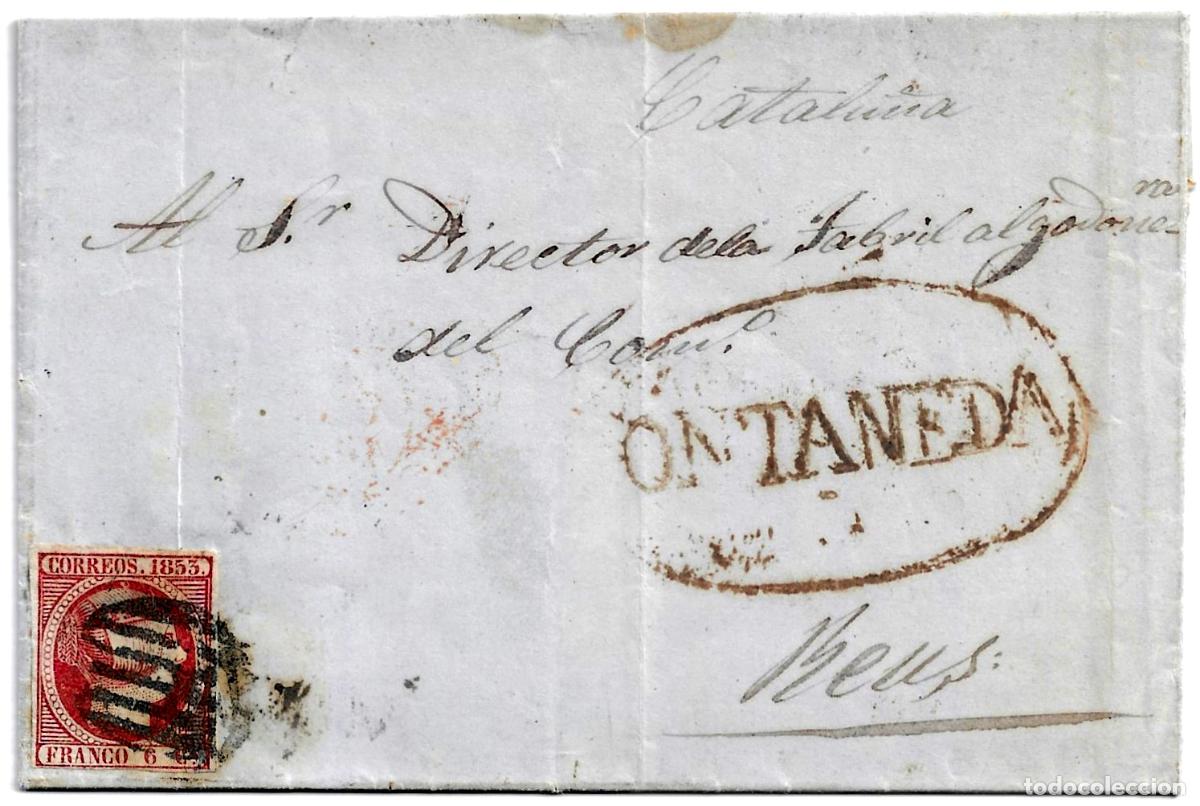 Cataluña
Al S.r Director de la Fabril algodonera
del Com.o
ONTANEDA
Reus.
CORREOS. 1853.
FRANCO 6 C.s
todocoleccion